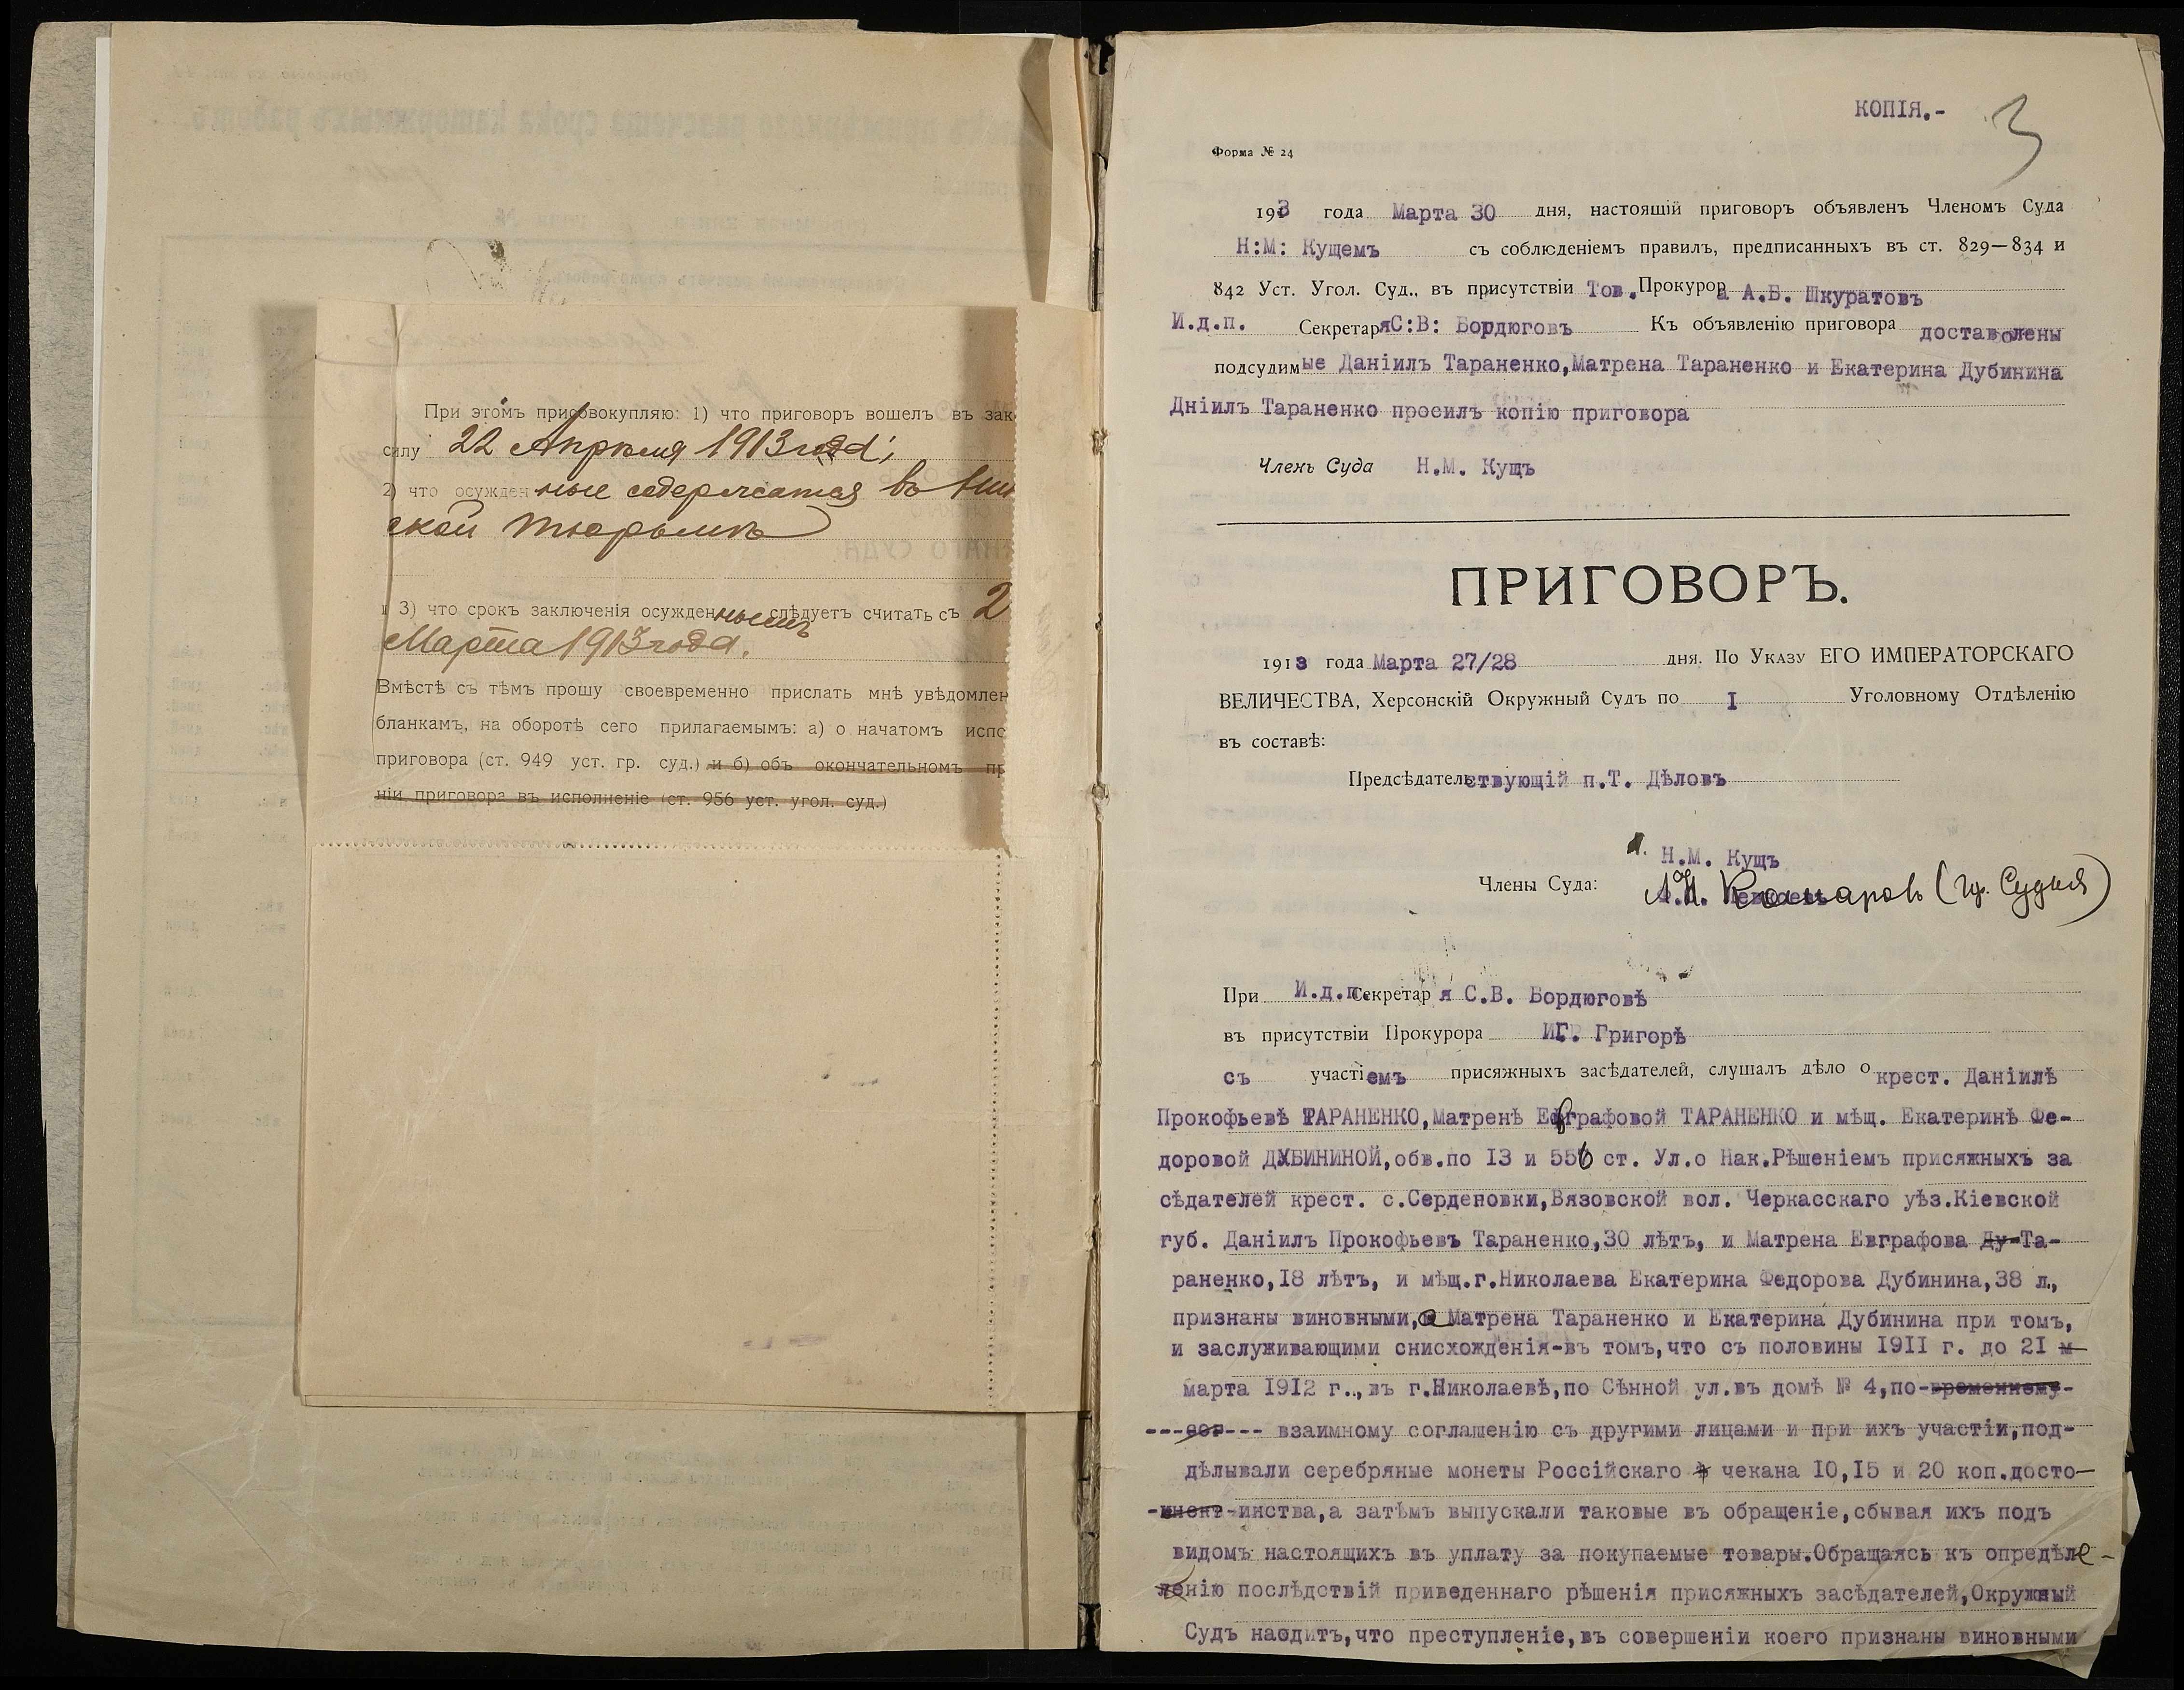 При этомъ присовокупляю: 1) что приговоръ вошелъ въ зак
силу 22 Апрѣля 1913 года;
2) что осужденные содержатся въ
ской тюрьмѣ
3) что срокъ заключенія осужденнымъ слѣдуетъ считать съ 2
Марта 1913 года.
Вмѣстѣ съ тѣмъ прошу своевременно прислать мнѣ увѣдомлен
бланкамъ, на оборотѣ сего прилагаемымъ: а) о начатомъ испо
приговора (ст. 949 уст. гр. суд.) и б) объ окончательномъ пр
ніи приговора въ исполненіе (ст. 956 уст. угол. суд.)
КОПІЯ.-
3
Форма № 24
1913 года Марта 30 дня, настоящій приговоръ объявленъ Членомъ Суда
Н:М: Кущемъ съ соблюденіемъ правилъ, предписанныхъ въ ст. 829—834 и
842 Уст. Угол. Суд., въ присутствіи Тов. Прокурора А.Б. Шкуратовъ
И.д.п. Секретаря С:В: Бордюговъ Къ объявленію приговора доставлены
подсудимые Даніилъ Тараненко, Матрена Тараненко и Екатерина Дубинина
Дніилъ Тараненко просилъ копію приговора
Членъ Суда Н.М. Кущъ
ПРИГОВОРЪ.
1913 года Марта 27/28 дня. По Указу ЕГО ИМПЕРАТОРСКАГО
ВЕЛИЧЕСТВА, Херсонскій Окружный Судъ по I Уголовному Отдѣленію
въ составѣ:
Предсѣдательствующій п.Т. Дѣловъ
Н.М. Кущъ
Члены Суда: А.Н. Комаровъ (гр. Судья)
При И.д.п. Секретаря С.В. Бордюговѣ
въ присутствіи Прокурора И.Г. Григорѣ
съ участіемъ присяжныхъ засѣдателей, слушалъ дѣло о крест. Даніилѣ
Прокофьевѣ ТАРАНЕНКО, Матренѣ Евграфовой ТАРАНЕНКО и мѣщ. Екатеринѣ Фе-
доровой ДУБИНИНОЙ, обв.по 13 и 556 ст. Ул.о Нак.Рѣшеніемъ присяжныхъ за
сѣдателей крест. с.Серденовки, Вязовской вол. Черкасскаго уѣз.Кіевской
губ. Даніилъ Прокофьевъ Тараненко, 30 лѣтъ, и Матрена Евграфова Ду-Та-
раненко, 18 лѣтъ, и мѣщ.г.Николаева Екатерина Федорова Дубинина, 38 л.,
признаны виновными, а Матрена Тараненко и Екатерина Дубинина при томъ,
и заслуживающими снисхожденія-въ томъ, что съ половины 1911 г. до 21 м
марта 1912 г.., въ г.Николаевѣ, по Сѣнной ул.въ домѣ № 4, по-временному-
---сог--- взаимному соглашенію съ другими лицами и при ихъ участіи, под-
дѣлывали серебряные монеты Россійскаго чекана 10,15 и 20 коп.досто-
-инства, а затѣмъ выпускали таковые въ обращеніе, сбывая ихъ подъ
видомъ настоящихъ въ уплату за покупаемые товары.Обращаясь къ опредѣле-
ленію послѣдствій приведеннаго рѣшенія присяжныхъ засѣдателей, Окружный
Судъ наодитъ, что преступленіе, въ совершеніи коего признаны виновными